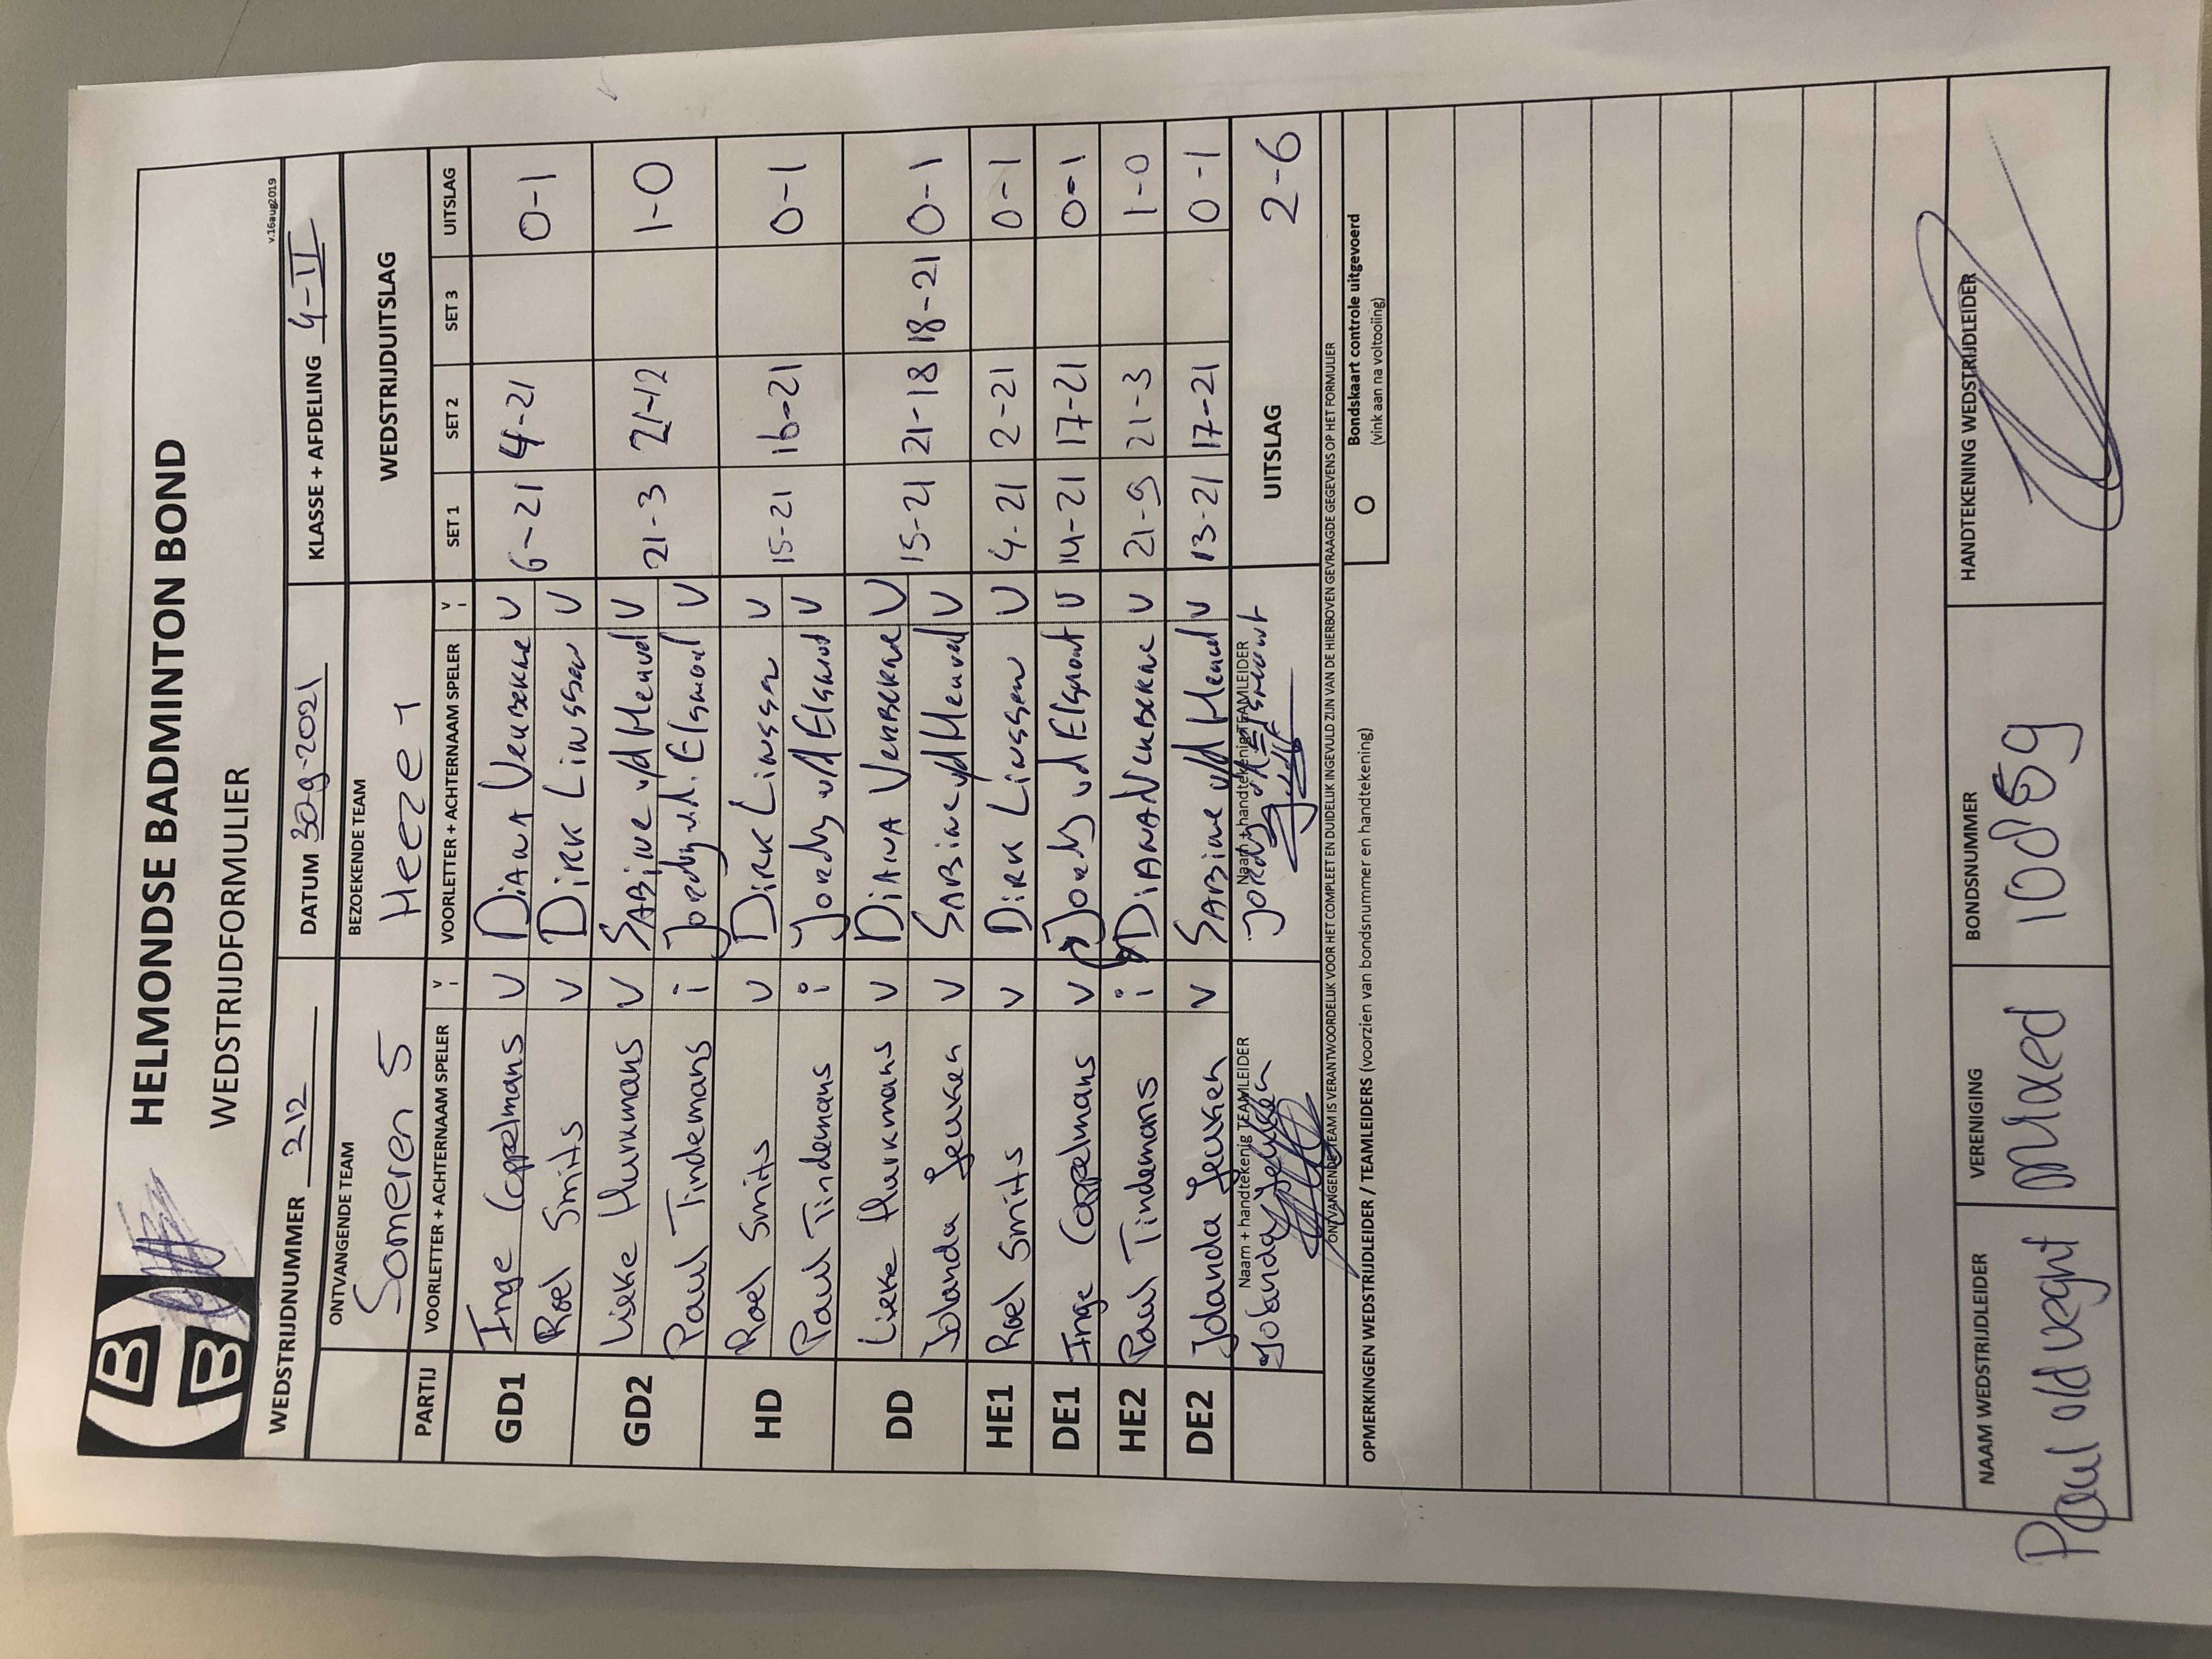 HELMONDSE BADMINTON BOND
WEDSTRIJDFORMULIER
v.16aug2019
WEDSTRIJDNUMMER 212 DATUM 30-9-2021 KLASSE + AFDELING
ONTVANGENDE TEAM BEZOEKENDE TEAM WEDSTRIJDUITSLAG
Someren 5 Heeze 1
PARTIJ VOORLETTER + ACHTERNAAM SPELER V i VOORLETTER + ACHTERNAAM SPELER V i SET 1 SET 2 SET 3 UITSLAG
GD1 Inge Coppelmans V Diana Venberkne V 6-21 4-21 0-1
Roel Smits V Dirk Linssen V
GD2 Lieke Hurkmans V Sabine v/d Heuvel V 21-3 21-12 1-0
Paul Tindemans i Jordy v.d. Elsnout V
HD Roel Smits V Dirk Linssen V 15-21 16-21 0-1
Paul Tindemans i Jordy v/d Elsnout V
DD Lieke Hurkmans V Diana V 15-21 21-18 18-21 0-1
Jolanda Jeuken V Sabine v/d Heuvel V
HE1 Roel Smits V Dirk Linssen V 4-21 2-21 0-1
DE1 Inge Coppelmans V Jordy vd Elsnout V 14-21 17-21 0-1
HE2 Paul Tindemans i Diana V 21-9 21-3 1-0
DE2 Jolanda Jeuken V Sabine v/d Heuvel V 13-21 17-21 0-1
Naam + handtekenig TEAMLEIDER Naam + handtekenig TEAMLEIDER UITSLAG 2-6
Jolanda Jeuken Jordy
ONTVANGENDE TEAM IS VERANTWOORDELIJK VOOR HET COMPLEET EN DUIDELIJK INGEVULD ZIJN VAN DE HIERBOVEN GEVRAAGDE GEGEVENS OP HET FORMULIER
OPMERKINGEN WEDSTRIJDLEIDER / TEAMLEIDERS (voorzien van bondsnummer en handtekening) O Bondskaart controle uitgevoerd
(vink aan na voltooling)
NAAM WEDSTRIJDLEIDER VERENIGING BONDSNUMMER HANDTEKENING WEDSTRIJDLEIDER
Paul old veght Mixed